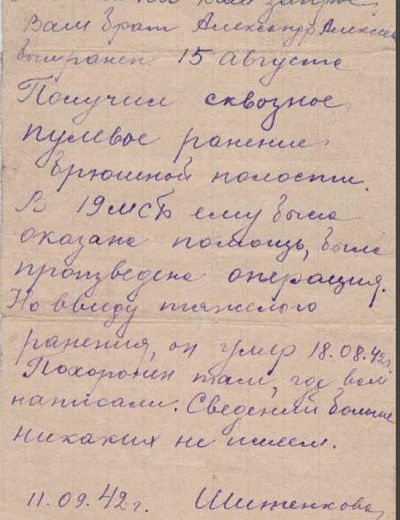 Ваш брат Александр Алексеев
был ранен 15 августа
Получил сквозное
пулевое ранение
брюшной полости.
В 19 МСБ ему была
оказана помощь, была
произведена операция.
Но ввиду тяжелого
ранения, он умер 18.08.42г.
Похоронен там, где вам
написали. Сведений больше
никаких не имеем.
11.09.42г. Шитенкова